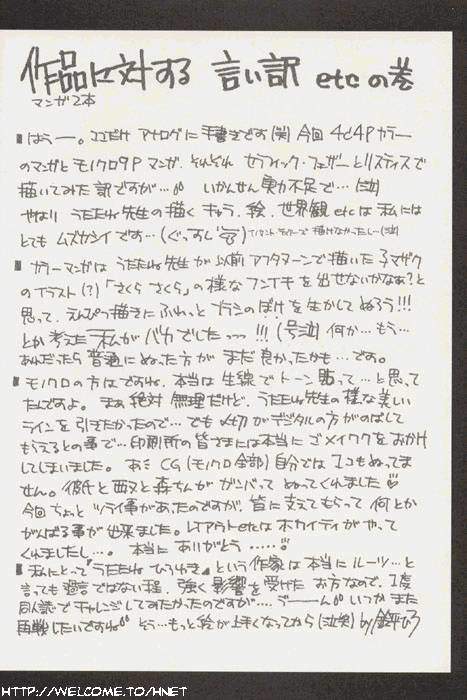 作品に対する 言い訳 etc の巻
マンガ2本
■はぅー。ココだけ アナログに 手書きです(笑) 今回 4c4P カラー
のマンガと モノクロ9P マンガ、それぞれ セラフィック・フェザーとリスティスで
描いてみた 訳ですが… いかんせん 実力不足で…(泣)
やはり うたたね先生の描く キャラ、絵、世界観 etc は 私には
とても ムズカシイです…(ぐっすし)
■カラーマンガは うたたね先生が 以前 アフタヌーンで描いた
のイラスト(?)「さくら さくら」の様な フンイキ を出せないかなぁ?と
思って、えんぴつ描きに ふわっと ブラシのぼけを生かして ぬろう!!!
とか考えた 私が バカでしたっっ!!!(号泣) 何か…もう…
あれだったら 普通に ぬった方が まだ良かったかも…です。
■モノクロの方はですね、本当は 生線で トーン 貼って…と思って
たんですよ。まぁ 絶対 無理だけど、うたたね先生の様な美しい
ラインを引きたかったので…でも〆切がデジタルの方がのばして
もらえるとの事で…印刷所の皆さまには本当に ゴメイワクをおかけ
してしまいました。あと CG(モノクロ全部) 自分では 1コもぬってま
せん。彼氏と 西又と 森ちんが ガンバって ぬってくれました
今回 ちょっと ツライ事があったのですが、皆に支えてもらって 何とか
がんばる事が出来ました。レイアウトetcは ホカイティが やって
くれましたし…。本当に ありがとう……
■私にとって『うたたね ひろゆき』という作家は 本当に ルーツ…と
言っても 過言ではない程、強く影響を受けた お方なので、1度
同人誌で チャレンジしてみたかったのですが… うーーん いつか また
再戦したいですね そう…もっと絵が上手くなってから(泣笑) by 鈴平ひろ
HTTP://WELCOME.TO/HNET